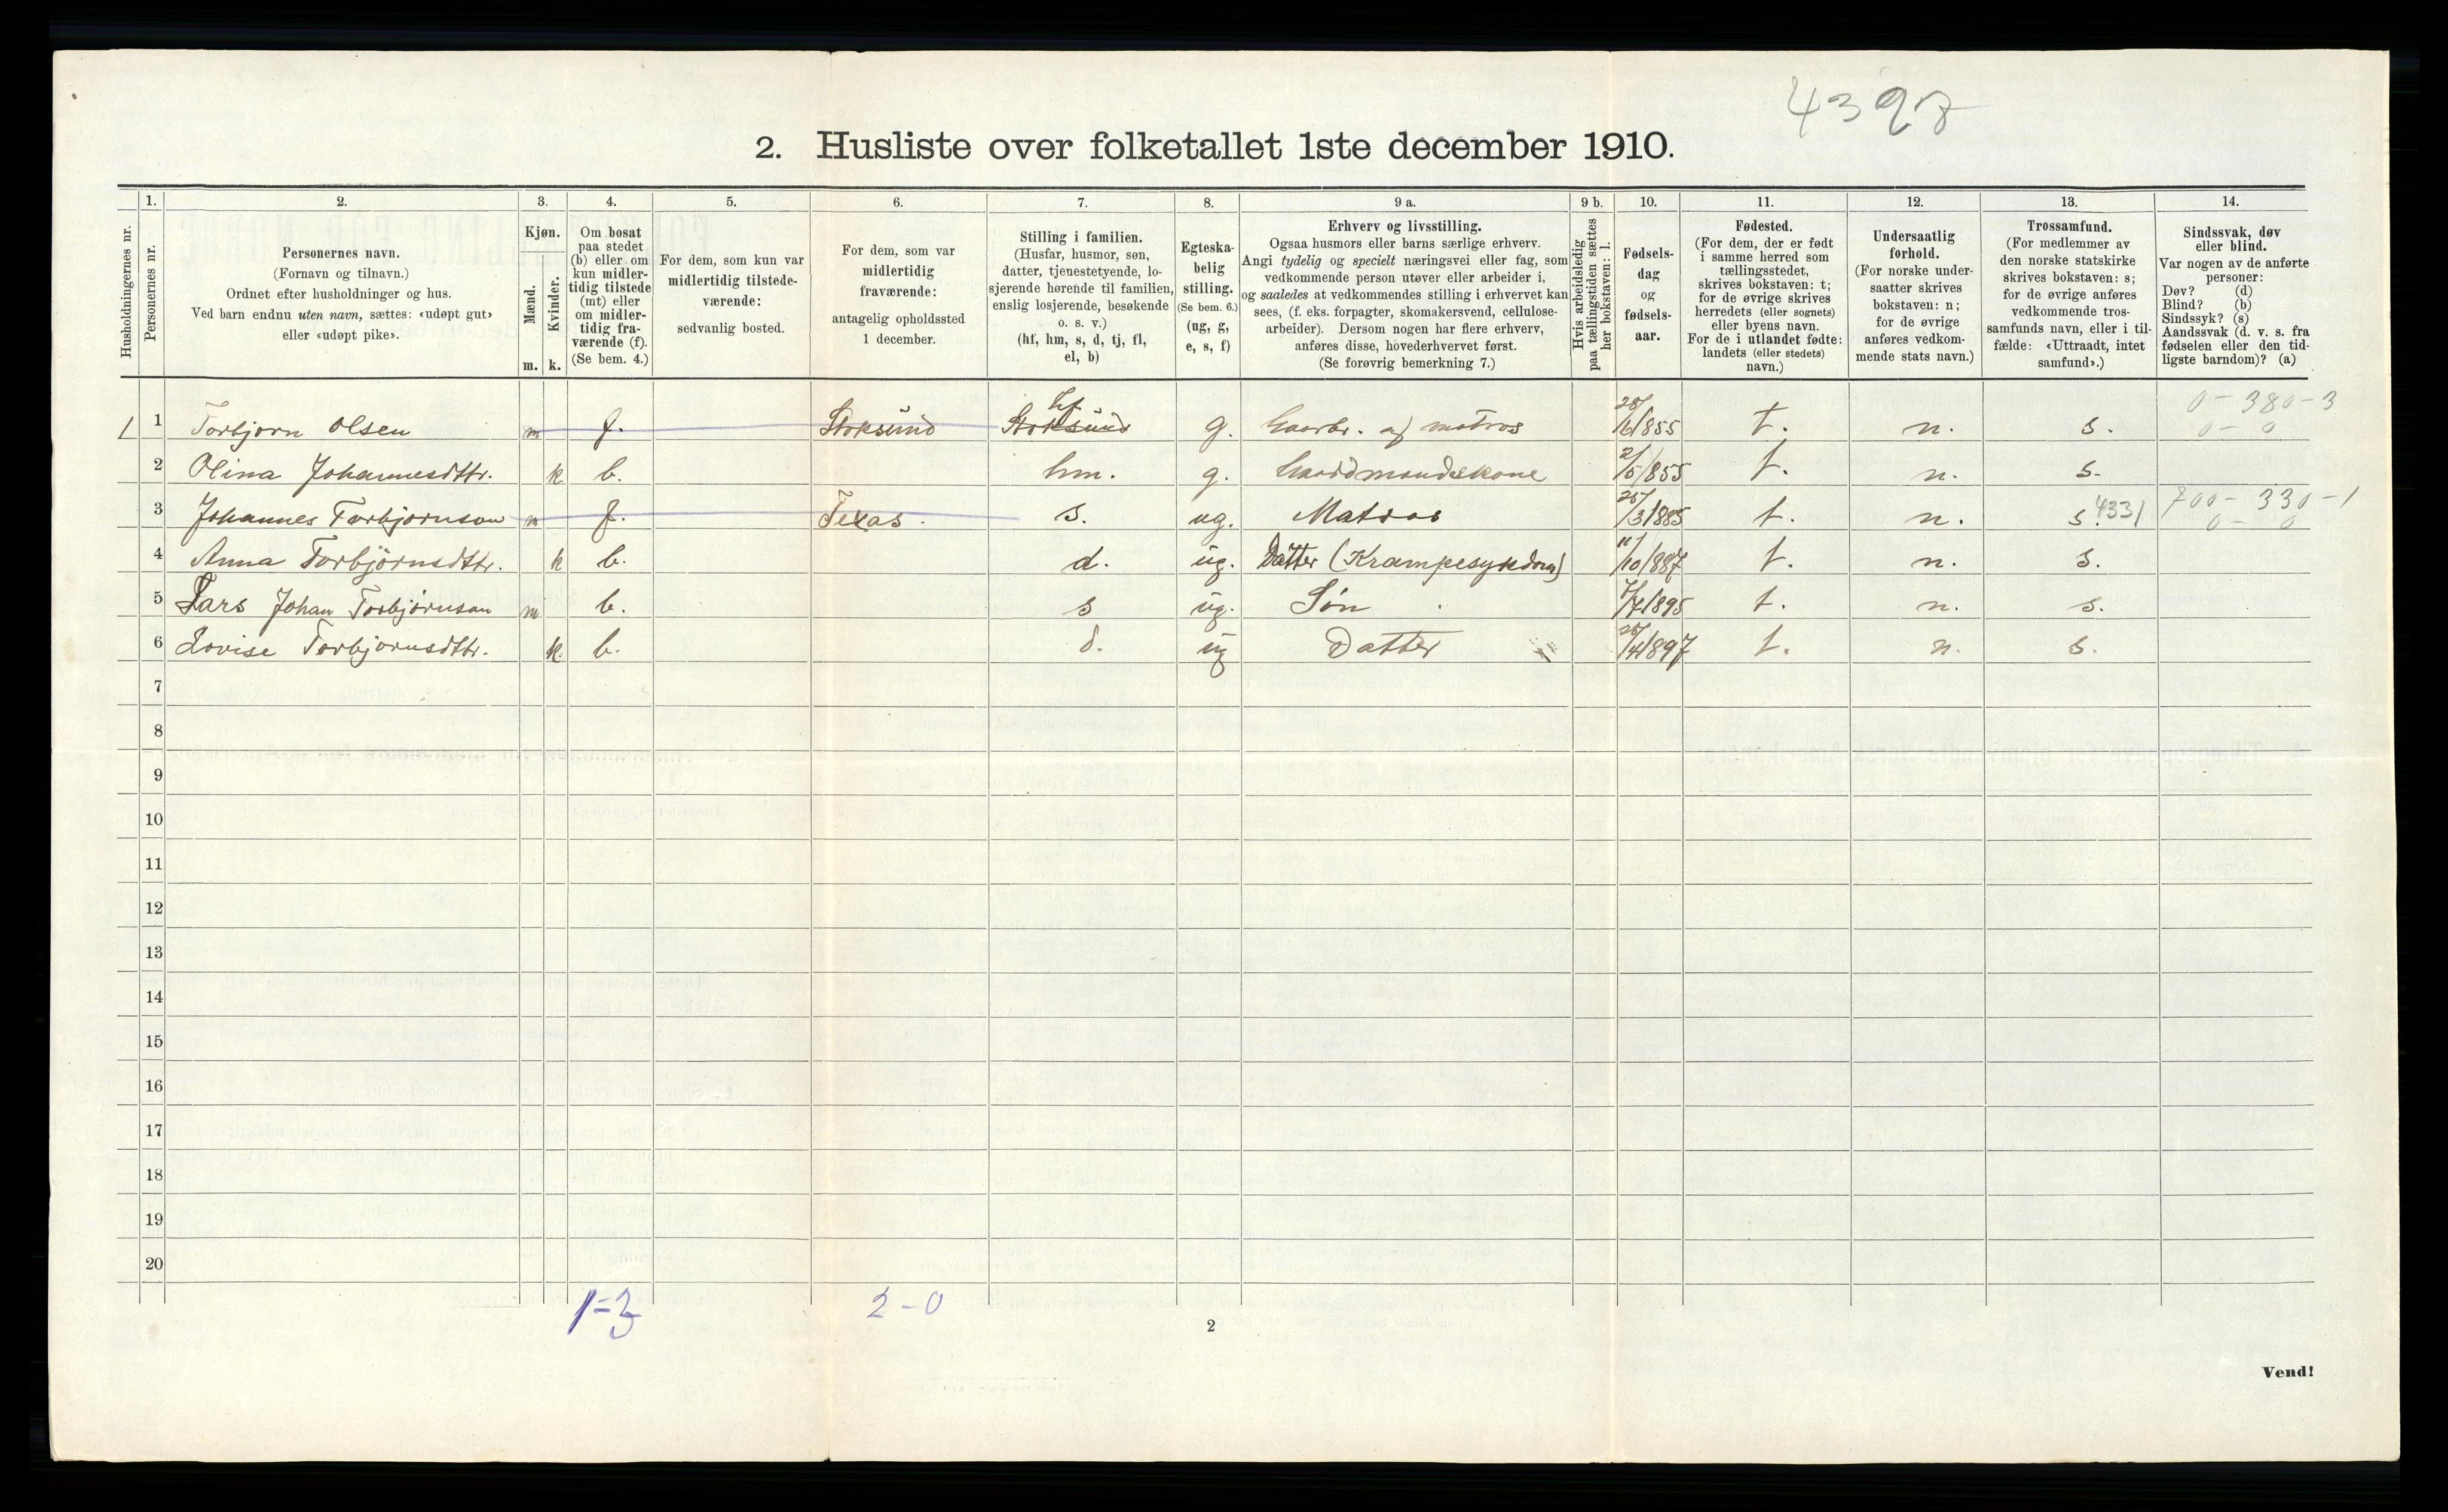 4397
2. Husliste over folketallet 1ste december 1910.
Husholdningernes nr.
1.
Personernes nr.
2.
Personernes navn.
(Fornavn og tilnavn.)
Ordnet efter husholdninger og hus.
Ved barn endnu uten navn, sættes: «udøpt gut»
eller «udøpt pike».
3.
Kjøn.
Mænd.
Kvinder.
m. k.
4.
Om bosat
paa stedet
(b) eller om
kun midler-
tidig tilstede
(mt) eller
om midler-
tidig fra-
værende (f).
(Se bem. 4.)
5.
For dem, som kun var
midlertidig tilstede-
værende:
sedvanlig bosted.
6.
For dem, som var
midlertidig
fraværende:
antagelig opholdssted
1 december.
7.
Stilling i familien.
(Husfar, husmor, søn,
datter, tjenestetyende, lo-
sjerende hørende til familien,
enslig losjerende, besøkende
o. s. v.)
(hf, hm, s, d, tj, fl,
el, b)
8.
Egteska-
belig
stilling.
(Se bem. 6.)
(ug, g,
e, s, f)
9 a.
Erhverv og livsstilling.
Ogsaa husmors eller barns særlige erhverv.
Angi tydelig og specielt næringsvei eller fag, som
vedkommende person utøver eller arbeider i,
og saaledes at vedkommendes stilling i erhvervet kan
sees, (f. eks. forpagter, skomakersvend, cellulose-
arbeider). Dersom nogen har flere erhverv,
anføres disse, hovederhvervet først.
(Se forøvrig bemerkning 7.)
9 b.
Hvis arbeidsledig
paa tællingstiden sættes
her bokstaven: l.
10.
Fødsels-
dag
og
fødsels-
aar.
11.
Fødested.
(For dem, der er født
i samme herred som
tællingsstedet,
skrives bokstaven: t;
for de øvrige skrives
herredets (eller sognets)
eller byens navn.
For de i utlandet fødte:
landets (eller stedets)
navn.)
12.
Undersaatlig
forhold.
(For norske under-
saatter skrives
bokstaven: n;
for de øvrige
anføres vedkom-
mende stats navn.)
13.
Trossamfund.
(For medlemmer av
den norske statskirke
skrives bokstaven: s;
for de øvrige anføres
vedkommende tros-
samfunds navn, eller i til-
fælde: «Uttraadt, intet
samfund».)
14.
Sindssvak, døv
eller blind.
Var nogen av de anførte
personer:
Døv? (d)
Blind? (b)
Sindssyk? (s)
Aandssvak (d. v. s. fra
fødselen eller den tid-
ligste barndom)? (a)
1 1 Torbjørn Olsen m f. Stoksund Stoksund hf g. Gaarbr. og matros /6/855 t. n. s. 0-380-3
0-0
2 Olina Johannesdttr. k b. hm. g. Gaardmandskone 2/5/855 t. n. s.
3 Johannes Torbjørnson m f. Texas. s. ug. Matros 25/3/885 t. n. s. 4331 700-330-1
0-0
4 Anna Torbjørnsdttr. k b. d. ug. Datter (Krampesykdom) 11/10/887 t. n. s.
5 Lars Johan Torbjørnson m b. s ug. Søn 7/7/895 t. n. s.
6 Lovise Torbjørnsdttr. k. b. d. ug Datter /4/897 t. n. s.
7
8
9
10
11
12
13
14
15
16
17
18
19
20
1-3 2-0
2
Vend!